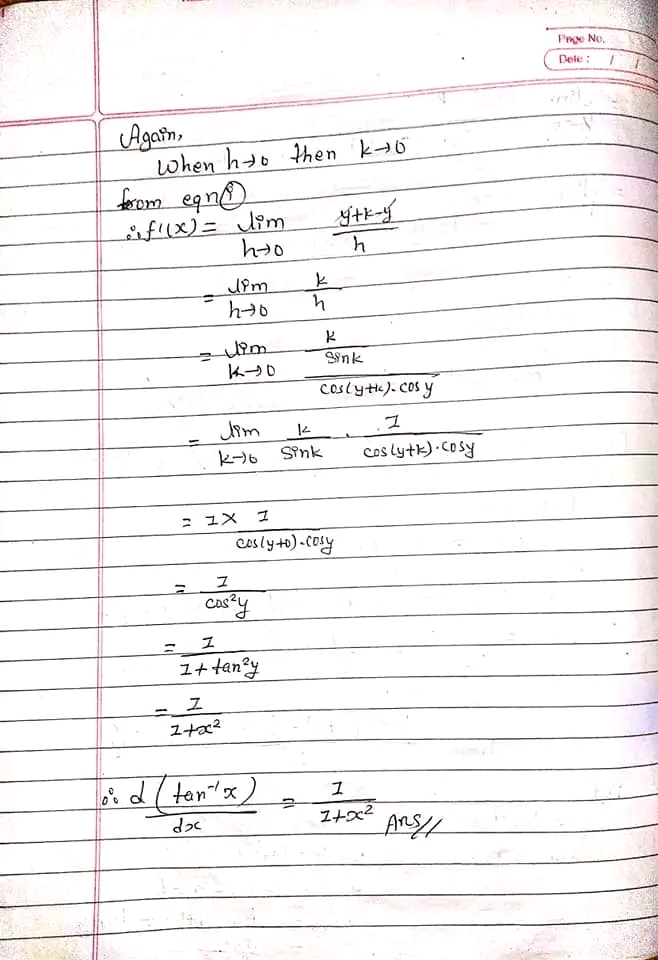 Page No.
Date : / /
Again,
When h→0 then k→0
from eqn (i)
∴ f'(x) = lim h→0 (y+k-y)/h
= lim h→0 k/h
= lim k→0 k/(sin k/(cos(y+k).cos y))
= lim k→0 k/sin k . 1/(cos(y+k).cosy)
= 1 × 1/(cos(y+0).cosy)
= 1/cos²y
= 1/(1+tan²y)
= 1/(1+x²)
∴ d(tan⁻¹x)/dx = 1/(1+x²) Ans//